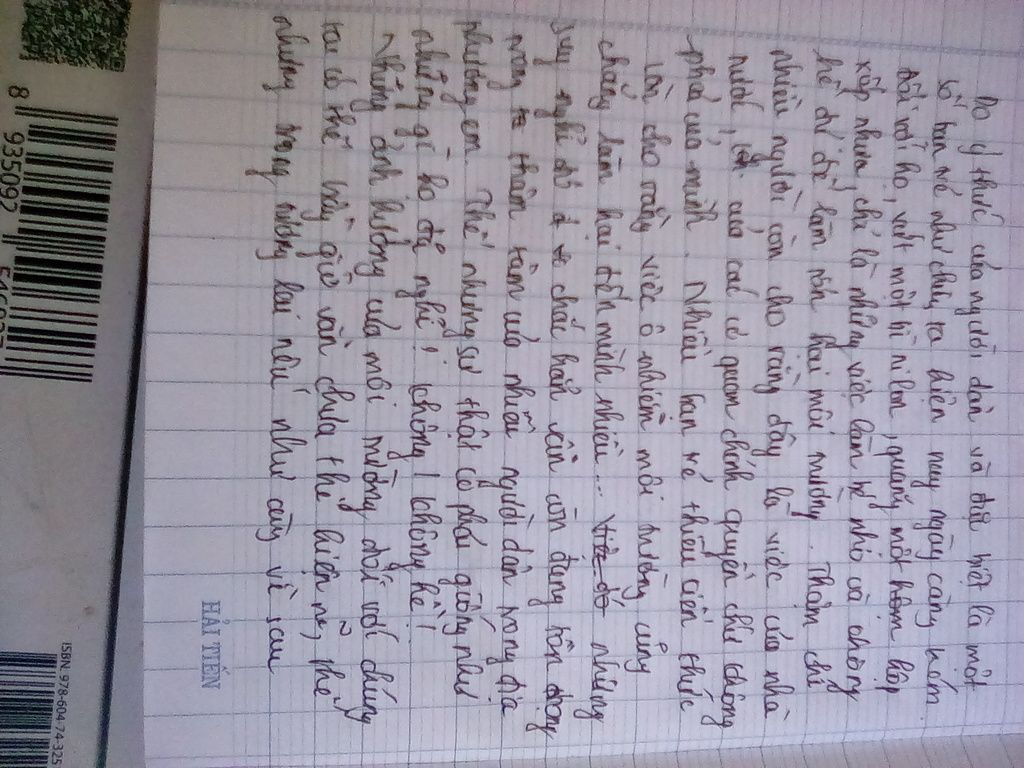 Do ý thức của người dân và đặc biệt là một
số bạn trẻ như chúng ta hiện nay ngày càng kém.
Đối với họ, vứt một bì nilon, quăng một hộm hộp
xốp nhựa chỉ là những việc làm nhỏ và chông
hề đủ để làm tổn hại môi trường. Thậm chí
nhiều người còn cho rằng đây là việc của nhà
nước, của các cơ quan chính quyền chứ chông
phải của mình. Nhiều bạn trẻ thiếu ciến thức
còn cho rằng việc ô nhiễm môi trường cũng
chẳng làm hại đến mình nhiều... những
suy nghĩ đó chắc hẳn vẫn còn đang tồn đọng
trong thâm tâm của nhiều người dân trong địa
phương em. Thế nhưng sự thật có phải giống như
những gì họ đã nghĩ? chông! chông hề!
Những ảnh hưởng của môi trường đối với chúng
ta có thể bây giờ vẫn chưa thể hiện rõ,
nhưng trong tương lai nếu như càng về sau
HẢI TIẾN
8 935092
ISBN: 978-604-74-325